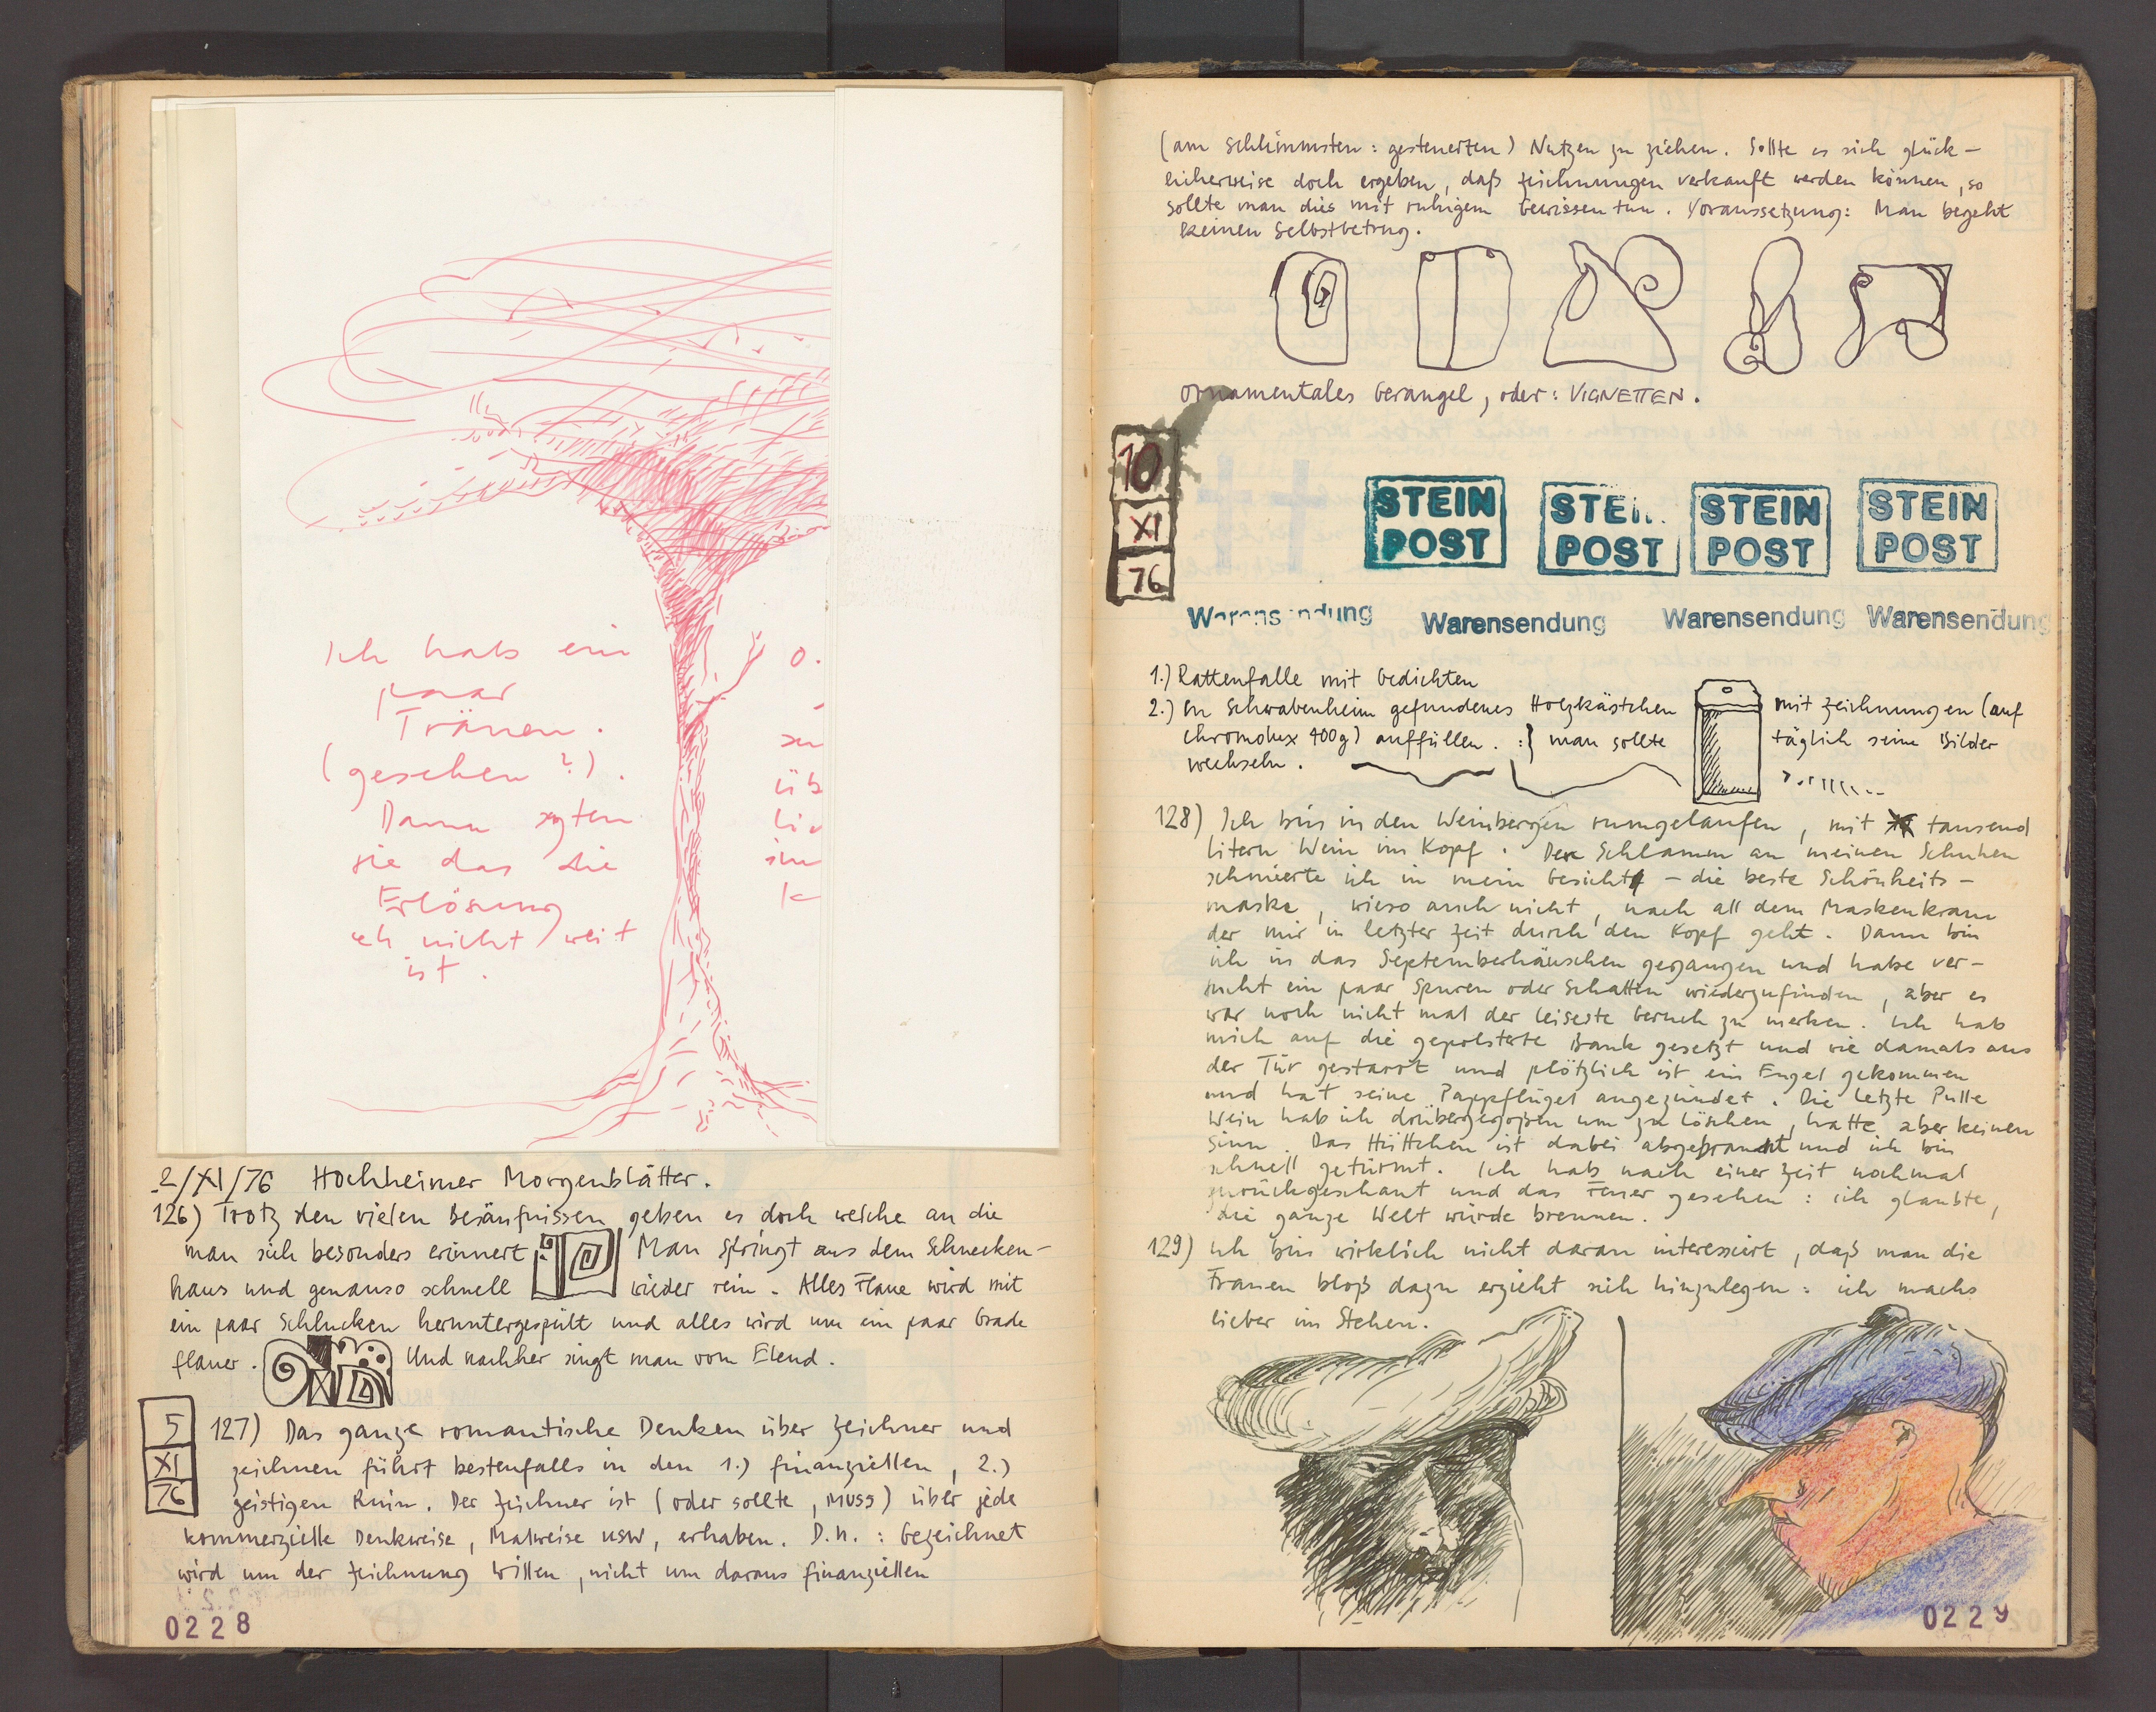 Ich hab ein
paar
Tränen.
(gesehen?).
Dann sagten
sie das die
Erlösung
eh nicht weit
ist.
2/XI/76 Hochheimer Morgenblätter.
126) Trotz den vielen Besäufnissen geben es doch welche an die
man sich besonders erinnert. Man springt aus dem Schnecken-
haus und genauso schnell wieder rein. Alles Flaue wird mit
ein paar Schlucken heruntergespült und alles wird um ein paar Grade
flauer. Und nachher singt man vom Elend.
5
XI
76
127) Das ganze romantische Denken über Zeichner und
zeichnen führt bestenfalls in den 1.) finanziellen, 2.)
geistigen Ruin. Der Zeichner ist (oder sollte, MUSS) über jede
kommerzielle Denkweise, Malweise usw, erhaben. D.h.: Gezeichnet
wird um der Zeichnung willen, nicht um daraus finanziellen
0228
(am schlimmsten: gesteuerten) Nutzen zu ziehen. Sollte es sich glück-
licherweise doch ergeben, daß Zeichnungen verkauft werden können, so
sollte man dies mit ruhigem Gewissen tun. Voraussetzung: Man begeht
keinen Selbstbetrug.
Ornamentales Gerangel, oder: VIGNETTEN.
10
XI
76
STEIN POST STEIN POST STEIN POST STEIN POST
Warensendung Warensendung Warensendung Warensendung
1.) Rattenfalle mit Gedichten
2.) In Schwabenheim gefundenes Holzkästchen mit Zeichnungen (auf
Chromolux 400g) auffüllen. :} man sollte täglich seine Bilder
wechseln.
128) Ich bin in den Weinbergen rumgelaufen, mit tausend
Litern Wein im Kopf. Den Schlamm an meinen Schuhen
schmierte ich in mein Gesicht – die beste Schönheits-
maske, wieso auch nicht, nach all dem Maskenkram
der mir in letzter Zeit durch den Kopf geht. Dann bin
ich in das Septemberhäuschen gegangen und habe ver-
sucht ein paar Spuren oder Schatten wiederzufinden, aber es
war noch nicht mal der leiseste Geruch zu merken. Ich hab
mich auf die gepolsterte Bank gesetzt und wie damals aus
der Tür gestarrt und plötzlich ist ein Engel gekommen
und hat seine Pappflügel angezündet. Die letzte Pulle
Wein hab ich drübergegoßen um zu löschen, hatte aber keinen
Sinn. Das Hüttchen ist dabei abgebrannt und ich bin
schnell getürmt. Ich hab nach einer Zeit nochmal
zurückgeschaut und das Feuer gesehen: ich glaubte,
die ganze Welt würde brennen.
129) Ich bin wirklich nicht daran interessiert, daß man die
Frauen bloß dazu erzieht sich hinzulegen: ich machs
lieber im Stehen.
0229